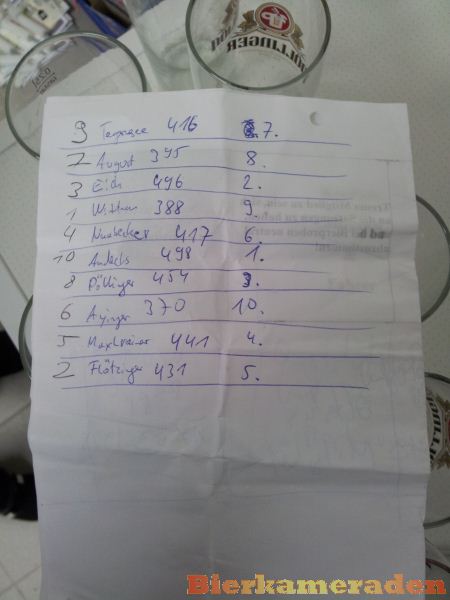 ÖTTINGER
9 Tegernsee 416 7.
2 August 395 8.
3 Eich 496 2.
1 388 9.
4 417 6.
10 Andechs 498 1.
8 Döllinger 454 3.
6 Ayinger 370 10.
5 Maxlrainer 441 4.
2 Flötzinger 431 5.
Bierkameraden